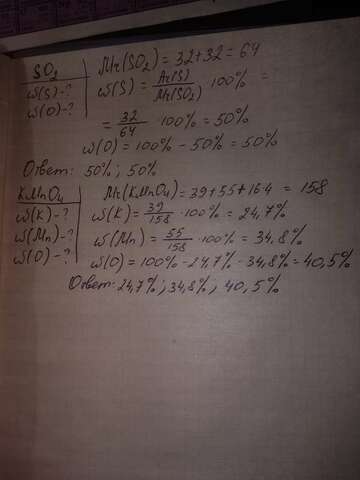 SO₂
Mr(SO₂) = 32+32 = 64
ω(S)-?
ω(S) = Ar(S)/Mr(SO₂) · 100% =
ω(O)-?
= 32/64 · 100% = 50%
ω(O) = 100% - 50% = 50%
Ответ: 50%; 50%
KMnO₄
Mr(KMnO₄) = 39+55+16·4 = 158
ω(K)-?
ω(K) = 39/158 · 100% = 24,7%
ω(Mn)-?
ω(Mn) = 55/158 · 100% = 34,8%
ω(O)-?
ω(O) = 100% - 24,7% - 34,8% = 40,5%
Ответ: 24,7%; 34,8%; 40,5%